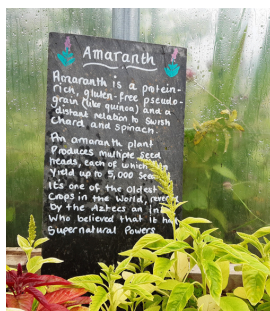 Amaranth
Amaranth is a protein-
rich, gluten-free pseudo-
grain (like quinoa) and a
distant relation to Swish
Chard and Spinach.
An amaranth plant
Produces multiple seed
heads, each of which
Yield up to 5,000 See
It's one of the oldest
Crops in the World, reve
by the Aztecs an In
Who believed that it ha
Supernatural Powers